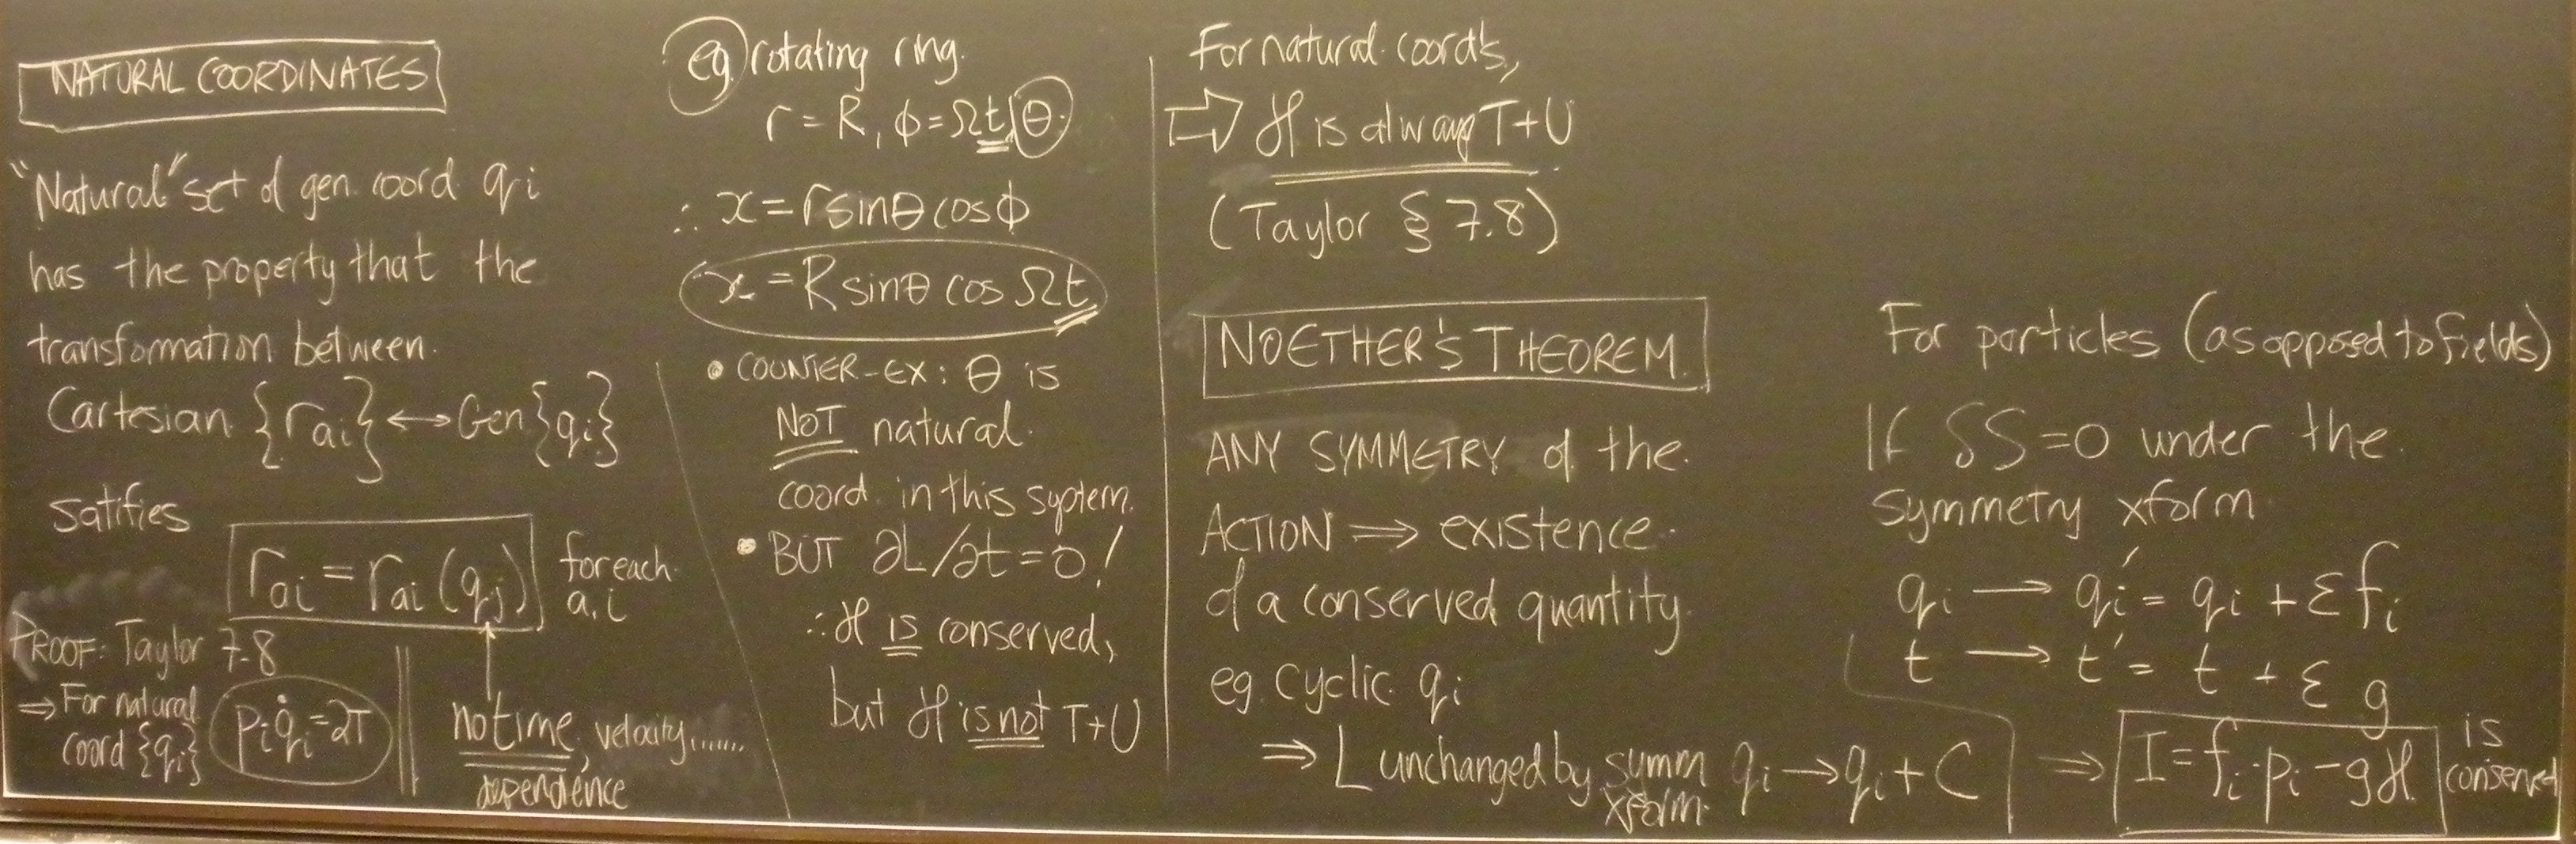 NATURAL COORDINATES
"Natural" set of gen. coord. qi
has the property that the
transformation between
Cartesian {rai} ↔ Gen {qi}
satifies
rai = rai (qj) for each a,i
PROOF: Taylor 7.8
⇒ For natural
coord {qi}
pi q̇i = 2T
no time, velocity,......
dependence
eg. rotating ring.
r = R, φ = Ωt, θ.
∴ x = r sinθ cosφ
x = R sinθ cos Ωt
• COUNTER-EX: θ is
NOT natural.
coord. in this system.
• BUT ∂L/∂t = 0!
∴ ℋ IS conserved,
but ℋ is not T+U
For natural coords,
⇒ ℋ is always T+U
(Taylor § 7.8)
NOETHER'S THEOREM.
ANY SYMMETRY of the
ACTION ⇒ existence
of a conserved quantity.
eg. cyclic qi
⇒ L unchanged by symm xform. qi → qi + C
For particles (as opposed to fields)
If δS = 0 under the
symmetry xform
qi → qi′ = qi + εfi
t → t′ = t + εg
⇒ I = fi·pi − gℋ is conserved